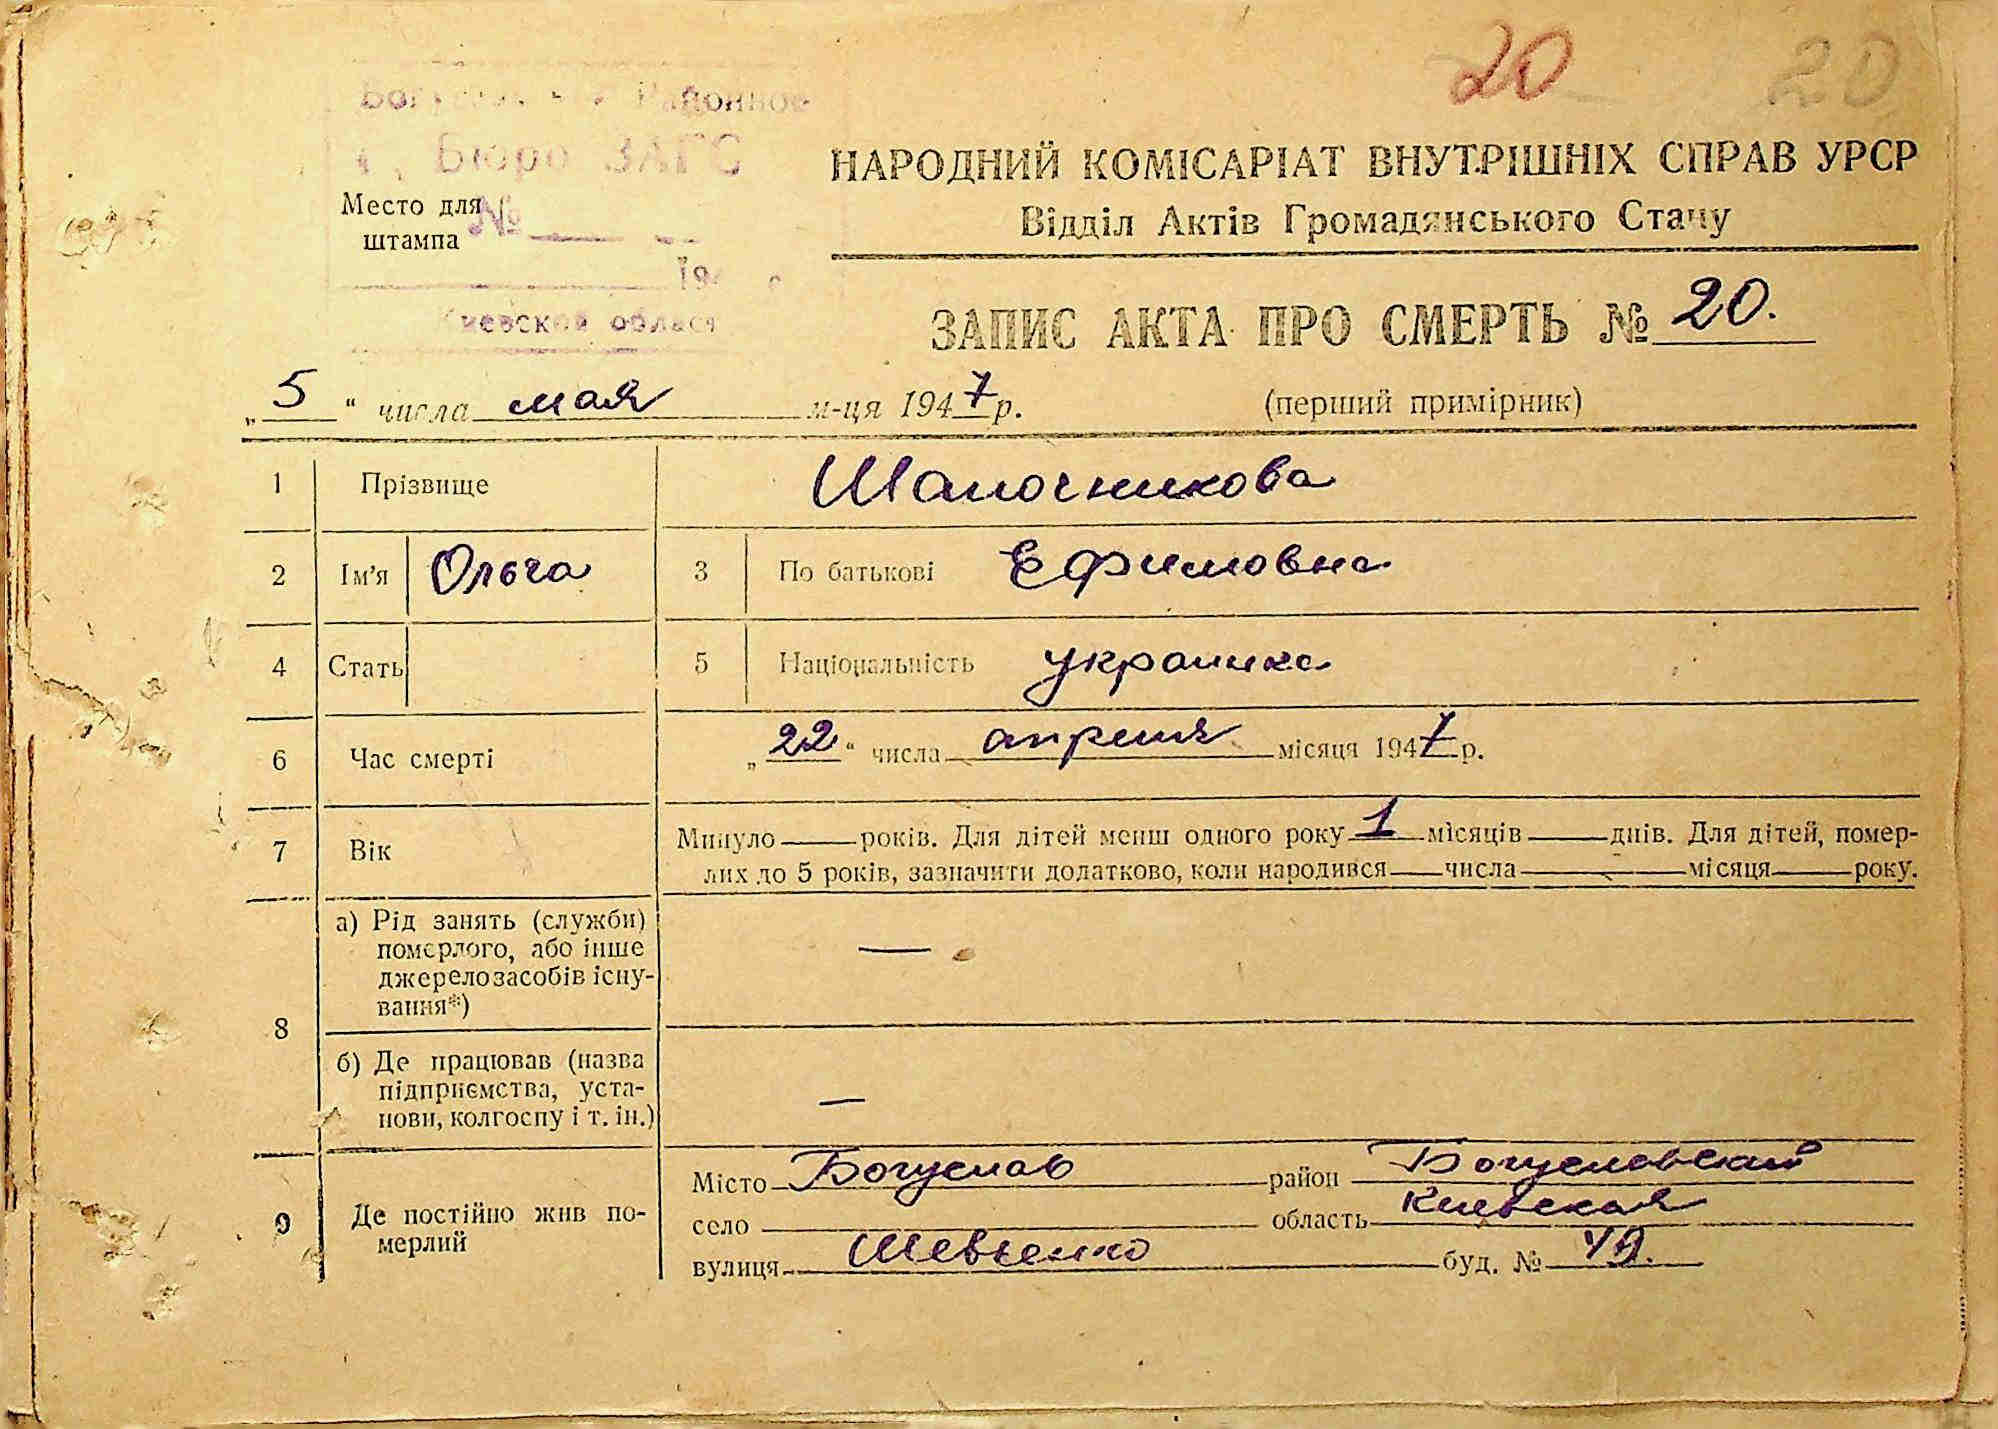 20 20
Бюро ЗАГС
Место для
штампа
№
194
Киевской област
НАРОДНИЙ КОМІСАРІАТ ВНУТРІШНІХ СПРАВ УРСР
Відділ Актів Громадянського Стану
ЗАПИС АКТА ПРО СМЕРТЬ № 20.
„5“ числа мая м-ця 1947 р. (перший примірник)
1 Прізвище Шапочникова
2 Ім’я Ольга 3 По батькові Ефимовна
4 Стать 5 Національність украинка
6 Час смерті „22“ числа апреля місяця 1947 р.
7 Вік Минуло — років. Для дітей менш одного року 1 місяців — днів. Для дітей, помер-
лих до 5 років, зазначити додатково, коли народився — числа — місяця — року.
8 а) Рід занять (служби)
померлого, або інше
джерело засобів існу-
вання*) —
б) Де працював (назва
підприємства, уста-
нови, колгоспу і т. ін.) —
9 Де постійно жив по-
мерлий
Місто Богуслав район Богуславский
село область Киевская
вулиця Шевченко буд. № 49.